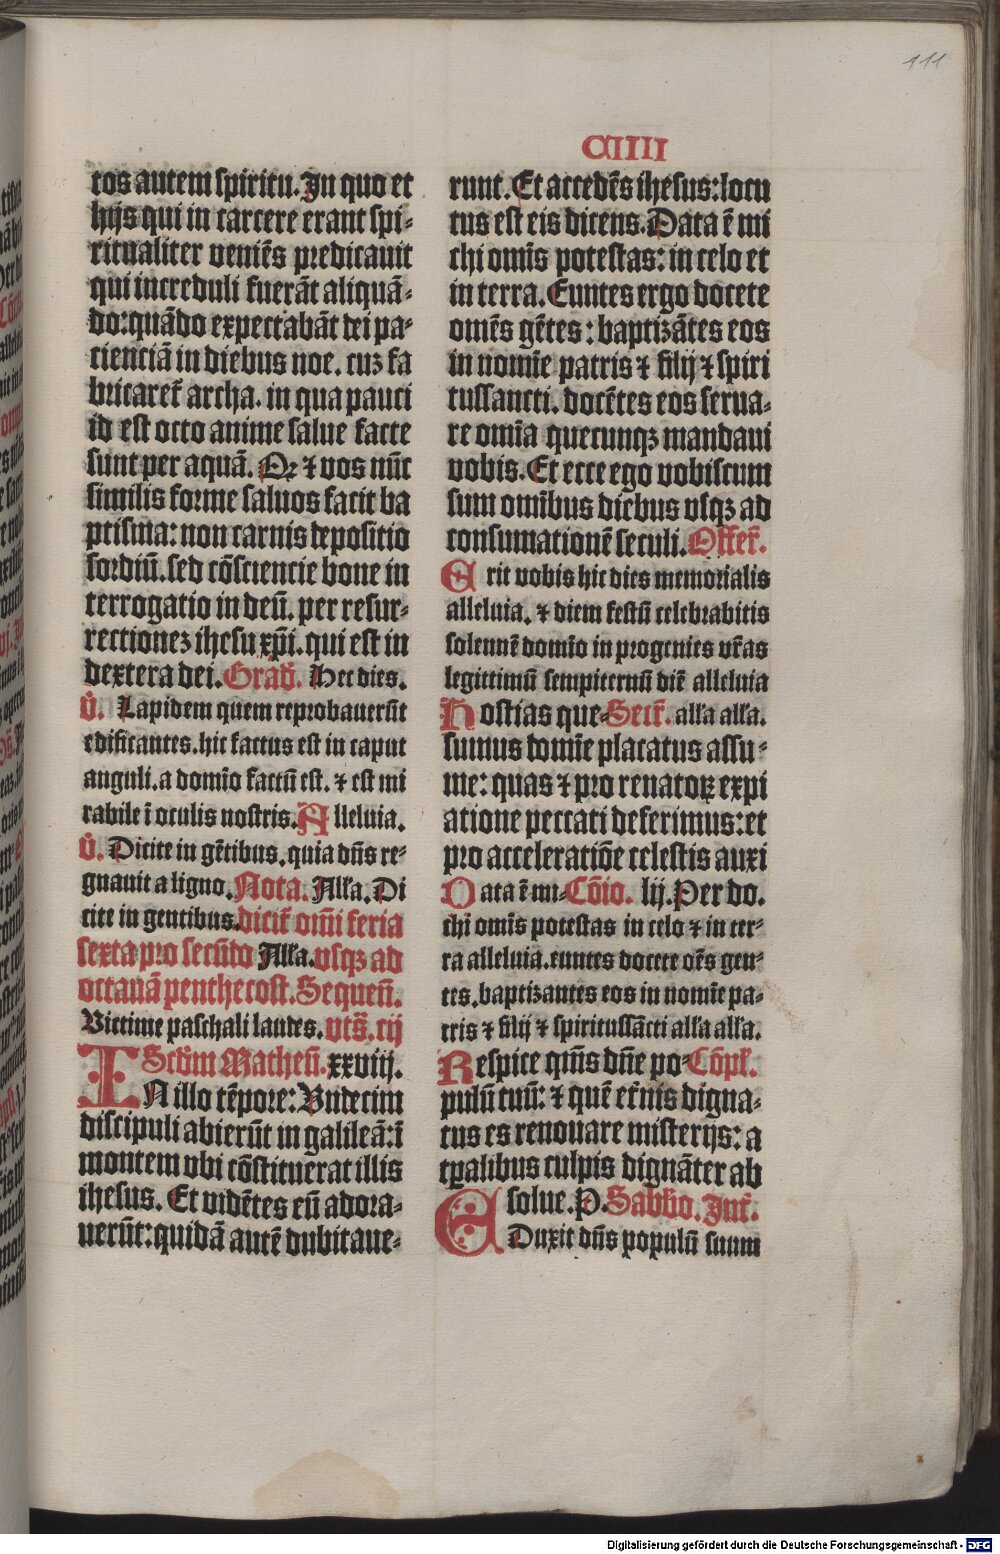 111
CIIII
tos autem spiritu. In quo et
hijs qui in carcere erant spi-
ritualiter veniēs predicauit
qui increduli fuerāt aliquā-
do: quādo expectabāt dei pa-
cienciā in diebus noe. cuz fa
bricareť archa. in qua pauci
id est octo anime salue facte
sunt per aquā. Qꝛ ⁊ vos nūc
similis forme saluos facit ba
ptisma: non carnis depositio
sordiū. sed cōsciencie bone in
terrogatio in deū. per resur-
rectionez ihesu xp̄i. qui est in
dextera dei. Grad̄. Hec dies.
V̇. Lapidem quem reprobauerūt
edificantes. hic factus est in caput
anguli. a domīo factū est. ⁊ est mi
rabile ī oculis nostris. Alleluia.
V̇. Dicite in gētibus. quia dn̄s re-
gnauit a ligno. Nota. Alľa. Di
cite in gentibus. diciť om̄i feria
sexta pro secūdo Alľa. vsqꝫ ad
octauā penthecost. Sequen̄.
Victime paschali laudes. vts̄. cij
Scd̄m Matheū. xxviij.
IN illo tēpore: Vndecim
discipuli abierūt in galileā: ī
montem vbi cōstituerat illis
ihesus. Et vidētes eū adora-
uerūt: quidā autē dubitaue-
runt. Et accedēs ihesus: locu
tus est eis dicens. Data ē mi
chi om̄is potestas: in celo et
in terra. Euntes ergo docete
omēs gētes: baptizātes eos
in nomīe patris ⁊ filij ⁊ spiri
tussancti. docētes eos serua-
re om̄ia quecunqꝫ mandaui
vobis. Et ecce ego vobiscum
sum om̄ibus diebus vsqꝫ ad
consumationē seculi. Offeř.
Erit vobis hic dies memorialis
alleluia. ⁊ diem festū celebrabitis
solennē domīo in progenies vr̄as
legittimū sempiternū diē alleluia
Hostias que- Secř. alľa alľa.
sumus domīe placatus assu-
me: quas ⁊ pro renatoꝝ expi
atione peccati deferimus: et
pro acceleratiōe celestis auxi
Data ē mi- Cōio. lij. Per do.
chi om̄is potestas in celo ⁊ in ter-
ra alleluia. euntes docete oēs gen-
tes. baptizantes eos in nomīe pa-
tris ⁊ filij ⁊ spiritussācti alľa alľa.
Respice qm̄s dn̄e po- Cōpľ.
pulū tuū: ⁊ quē eťnis digna-
tus es renouare misterijs: a
tꝑalibus culpis dignāter ab
solue. P. Sabbo. Inť.
EDuxit dn̄s populū suum
Digitalisierung gefördert durch die Deutsche Forschungsgemeinschaft - DFG